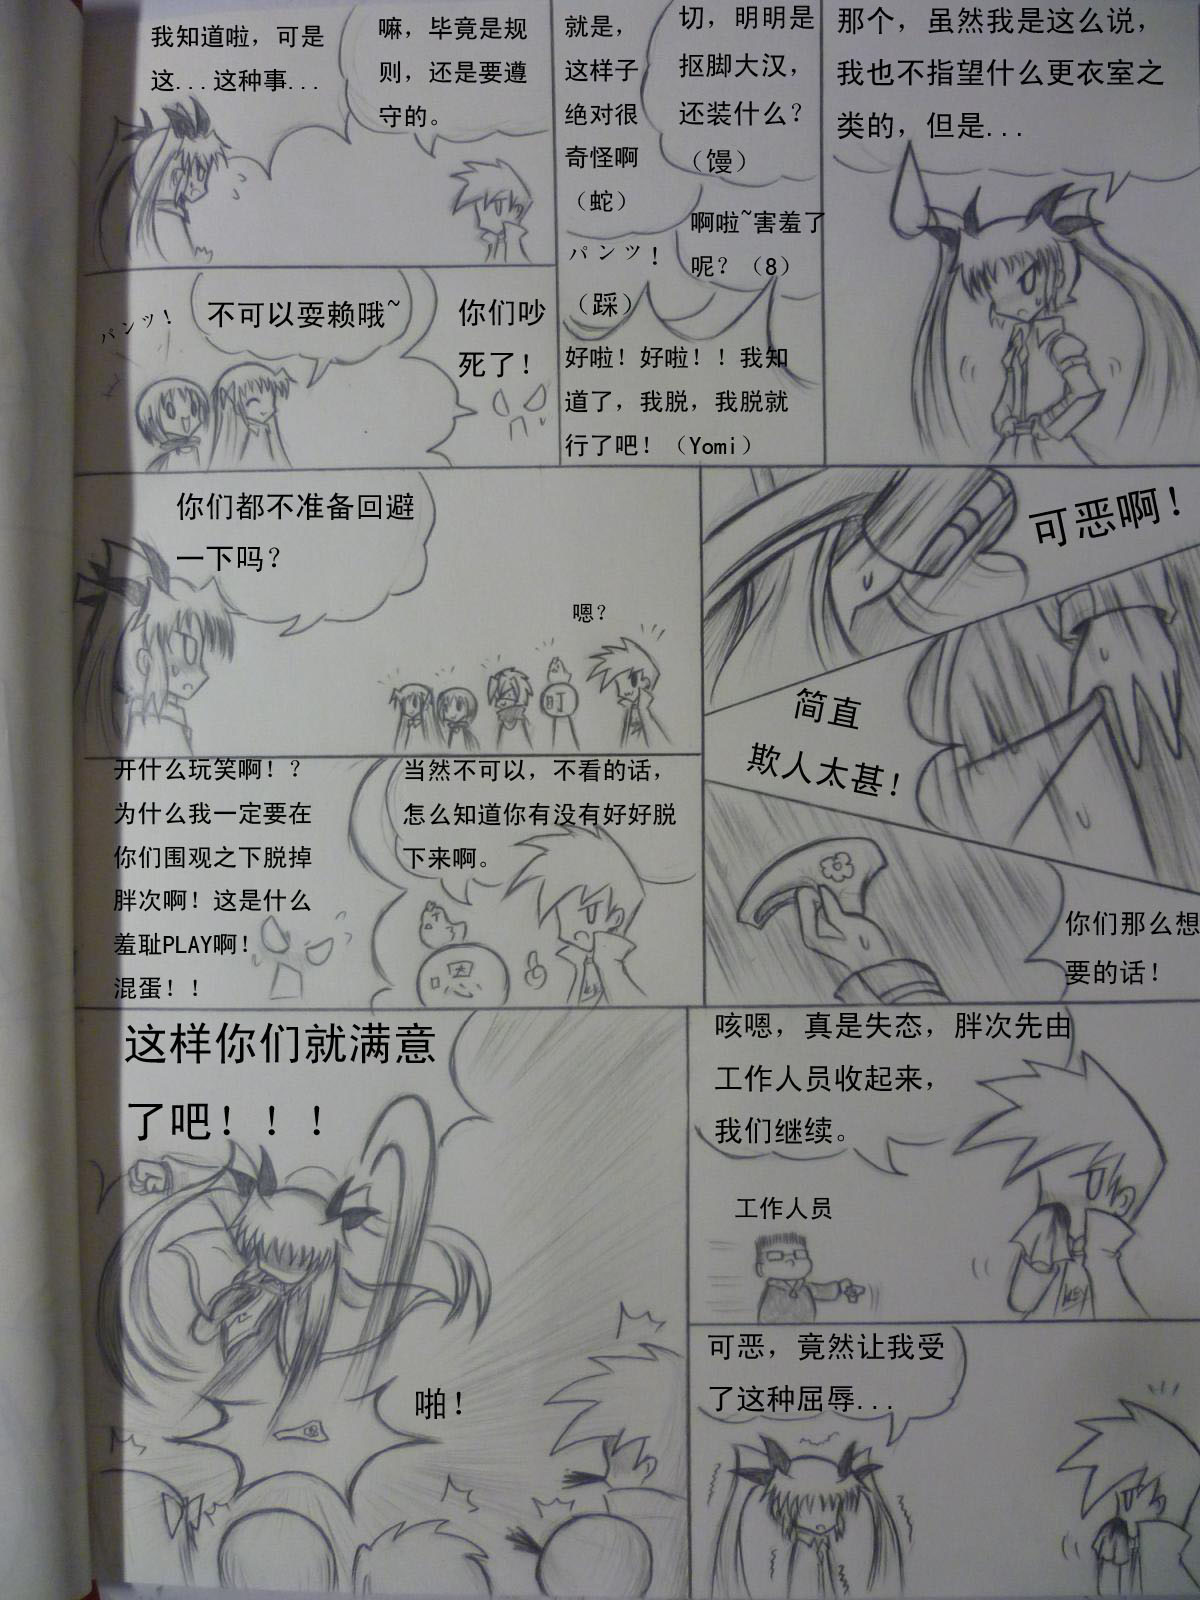 我知道啦，可是
这...这种事...
嘛，毕竟是规
则，还是要遵
守的。
パンツ！
不可以耍赖哦~
你们吵
死了！
就是，
这样子
绝对很
奇怪啊
（蛇）
切，明明是
抠脚大汉，
还装什么？
（馒）
パンツ！
（踩）
啊啦~害羞了
呢？（8）
好啦！好啦！！我知
道了，我脱，我脱就
行了吧！（Yomi）
那个，虽然我是这么说，
我也不指望什么更衣室之
类的，但是...
你们都不准备回避
一下吗？
嗯？
盯
开什么玩笑啊！？
为什么我一定要在
你们围观之下脱掉
胖次啊！这是什么
羞耻PLAY啊！
混蛋！！
当然不可以，不看的话，
怎么知道你有没有好好脱
下来啊。
嗯
可恶啊！
简直
欺人太甚！
你们那么想
要的话！
这样你们就满意
了吧！！！
啪！
咳嗯，真是失态，胖次先由
工作人员收起来，
我们继续。
工作人员
可恶，竟然让我受
了这种屈辱...